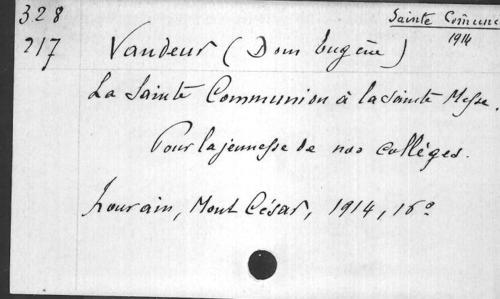 328
217
Sainte Com̃une
1914
Vandeur (Dom Eugène)
La Sainte Communion à la Sainte Messe.
Pour la jeunesse de nos collèges.
Louvain, Mont César, 1914, 16º